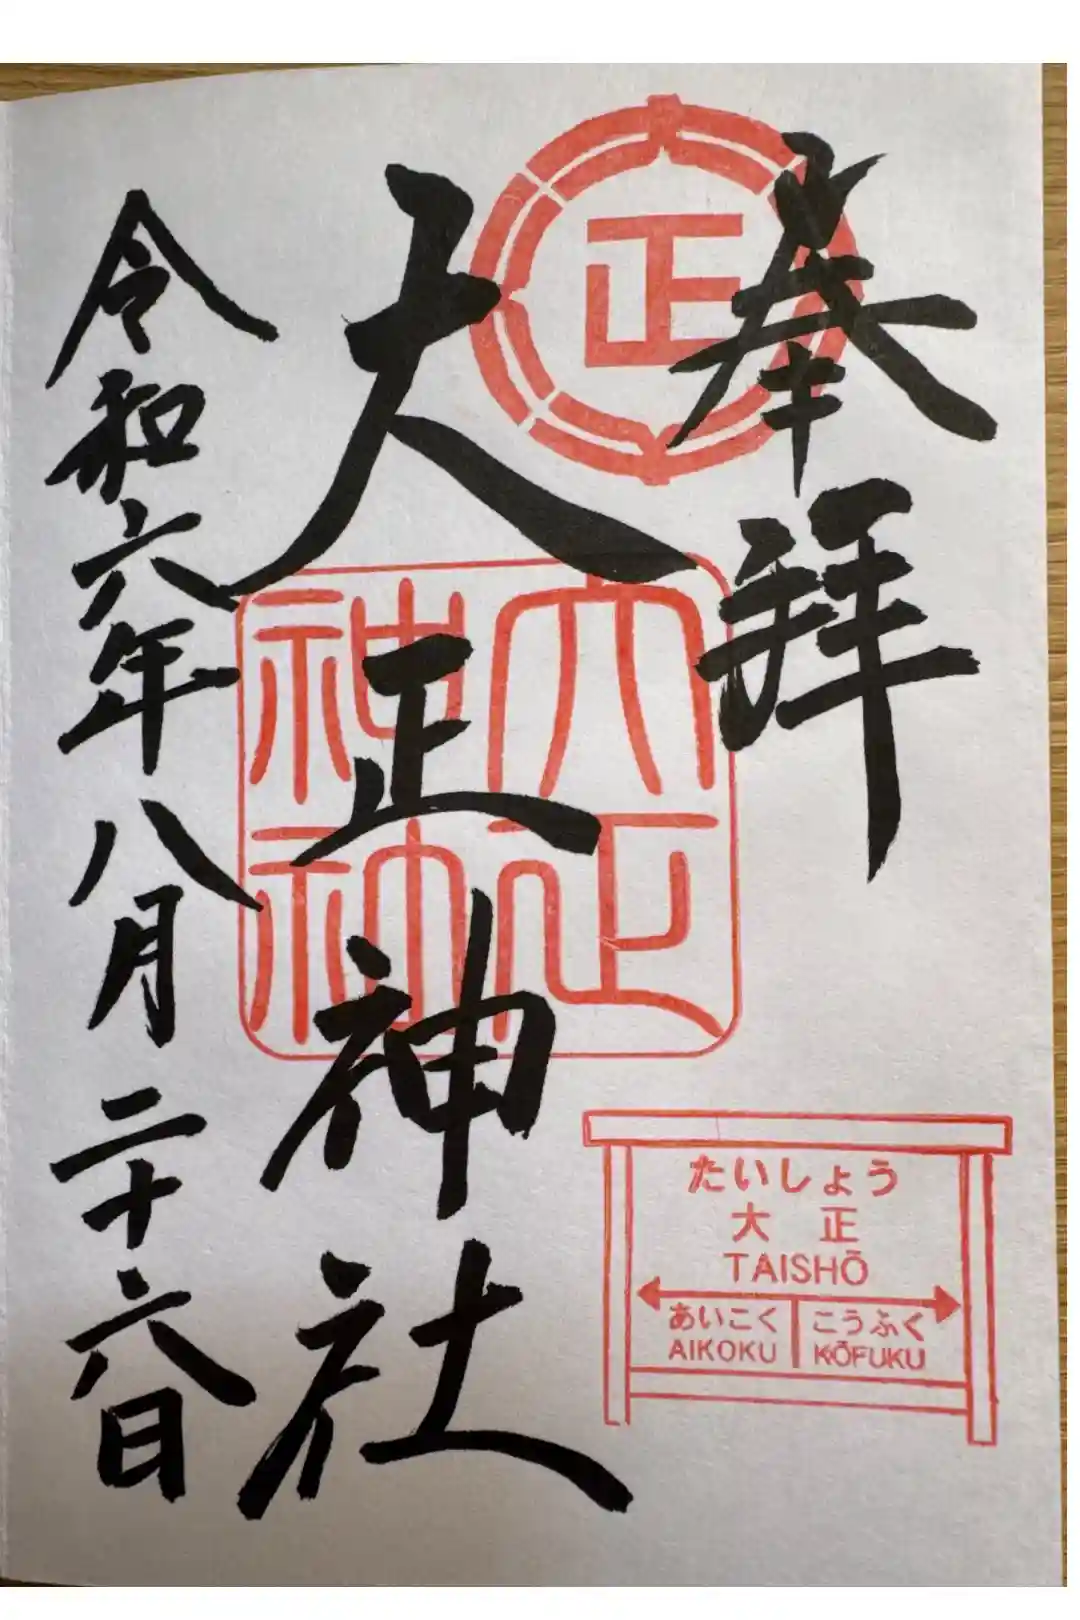 奉拝
正
大正神社
大正
神社
令和六年八月二十六日
たいしょう
大正
TAISHŌ
あいこく こうふく
AIKOKU KŌFUKU